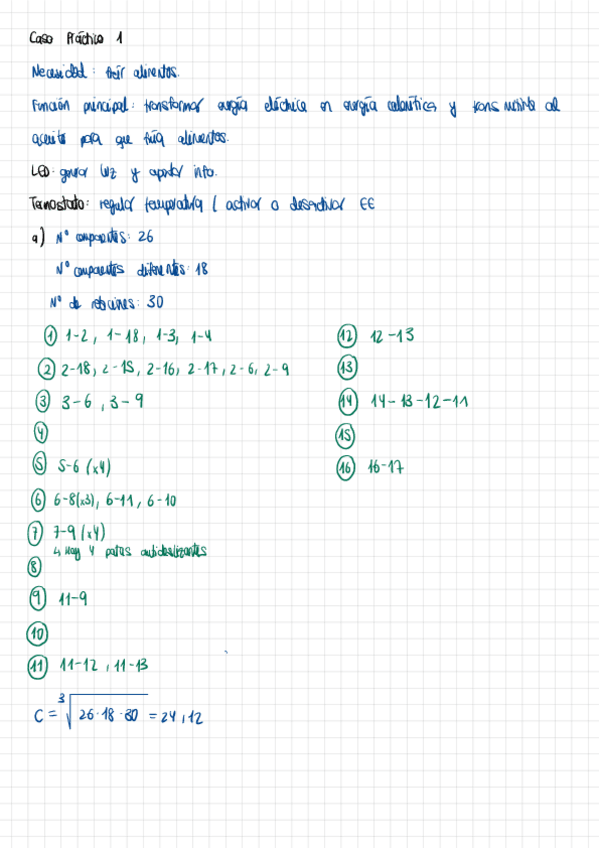 Caso Práctico 1
Necesidad: freír alimentos.
Función principal: transformar energía eléctrica en energía calorífica y transmitirla al
aceite para que fría alimentos.
LED: generar luz y aportar info.
Termostato: regular temperatura / activar o desactivar EE
a) Nº componentes: 26
Nº componentes diferentes: 18
Nº de relaciones: 30
1 1-2, 1-18, 1-3, 1-4
2 2-18, 2-15, 2-16, 2-17, 2-6, 2-9
3 3-6, 3-9
4
5 5-6 (x4)
6 6-8(x3), 6-11, 6-10
7 7-9 (x4)
↳ Hay 4 patas antideslizantes
8
9 11-9
10
11 11-12, 11-13
12 12-13
13
14 14-13-12-11
15
16 16-17
C = ∛26·18·30 = 24,12